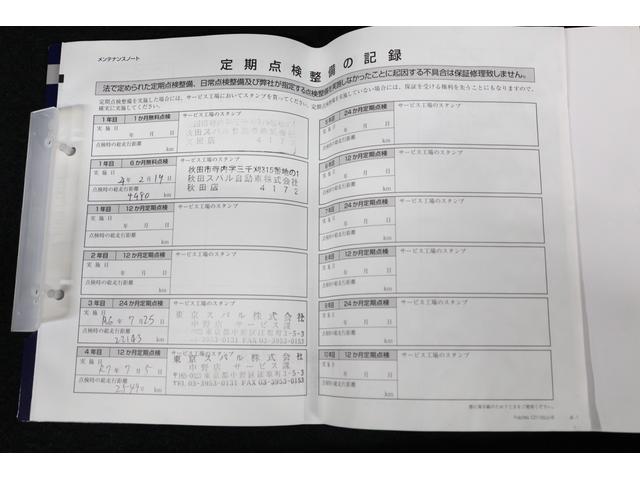 メンテナンスノート
定期点検整備の記録
法で定められた定期点検整備、日常点検整備及び弊社が指定する点検整備を実施しなかったことに起因する不具合は保証修理致しません。
定期点検整備を実施した場合には、サービス工場においてスタンプを貰ってください。定期点検整備を実施していない場合には、保証を受ける権利を失うことにもなりますので、
確実に実施してください。
1年目 1か月無料点検 サービス工場のスタンプ
実施日
年 月 日
点検時の総走行距離
km
1年目 6か月無料点検 サービス工場のスタンプ
実施日
4年2月19日
点検時の総走行距離
km
秋田スバル自動車株式会社
秋田店 4172
1年目 12か月定期点検 サービス工場のスタンプ
実施日
年 月 日
点検時の総走行距離
km
2年目 12か月定期点検 サービス工場のスタンプ
実施日
年 月 日
点検時の総走行距離
km
3年目 24か月定期点検 サービス工場のスタンプ
実施日
R6年7月25日
点検時の総走行距離
22143 km
東京スバル株式会社
中野店 サービス課
東京都中野区江原町3-5-3
TEL 03-3953-0131 FAX 03-3953-0153
4年目 12か月定期点検 サービス工場のスタンプ
実施日
R7年7月5日
点検時の総走行距離
km
東京スバル株式会社
中野店 サービス課
東京都中野区江原町3-5-3
TEL 03-3953-0131 FAX 03-3953-0153
5年目 24か月定期点検 サービス工場のスタンプ
実施日
年 月 日
点検時の総走行距離
km
6年目 12か月定期点検 サービス工場のスタンプ
実施日
年 月 日
点検時の総走行距離
km
7年目 24か月定期点検 サービス工場のスタンプ
実施日
年 月 日
点検時の総走行距離
km
8年目 12か月定期点検 サービス工場のスタンプ
実施日
年 月 日
点検時の総走行距離
km
9年目 24か月定期点検 サービス工場のスタンプ
実施日
年 月 日
点検時の総走行距離
km
10年目 12か月定期点検 サービス工場のスタンプ
実施日
年 月 日
点検時の総走行距離
km